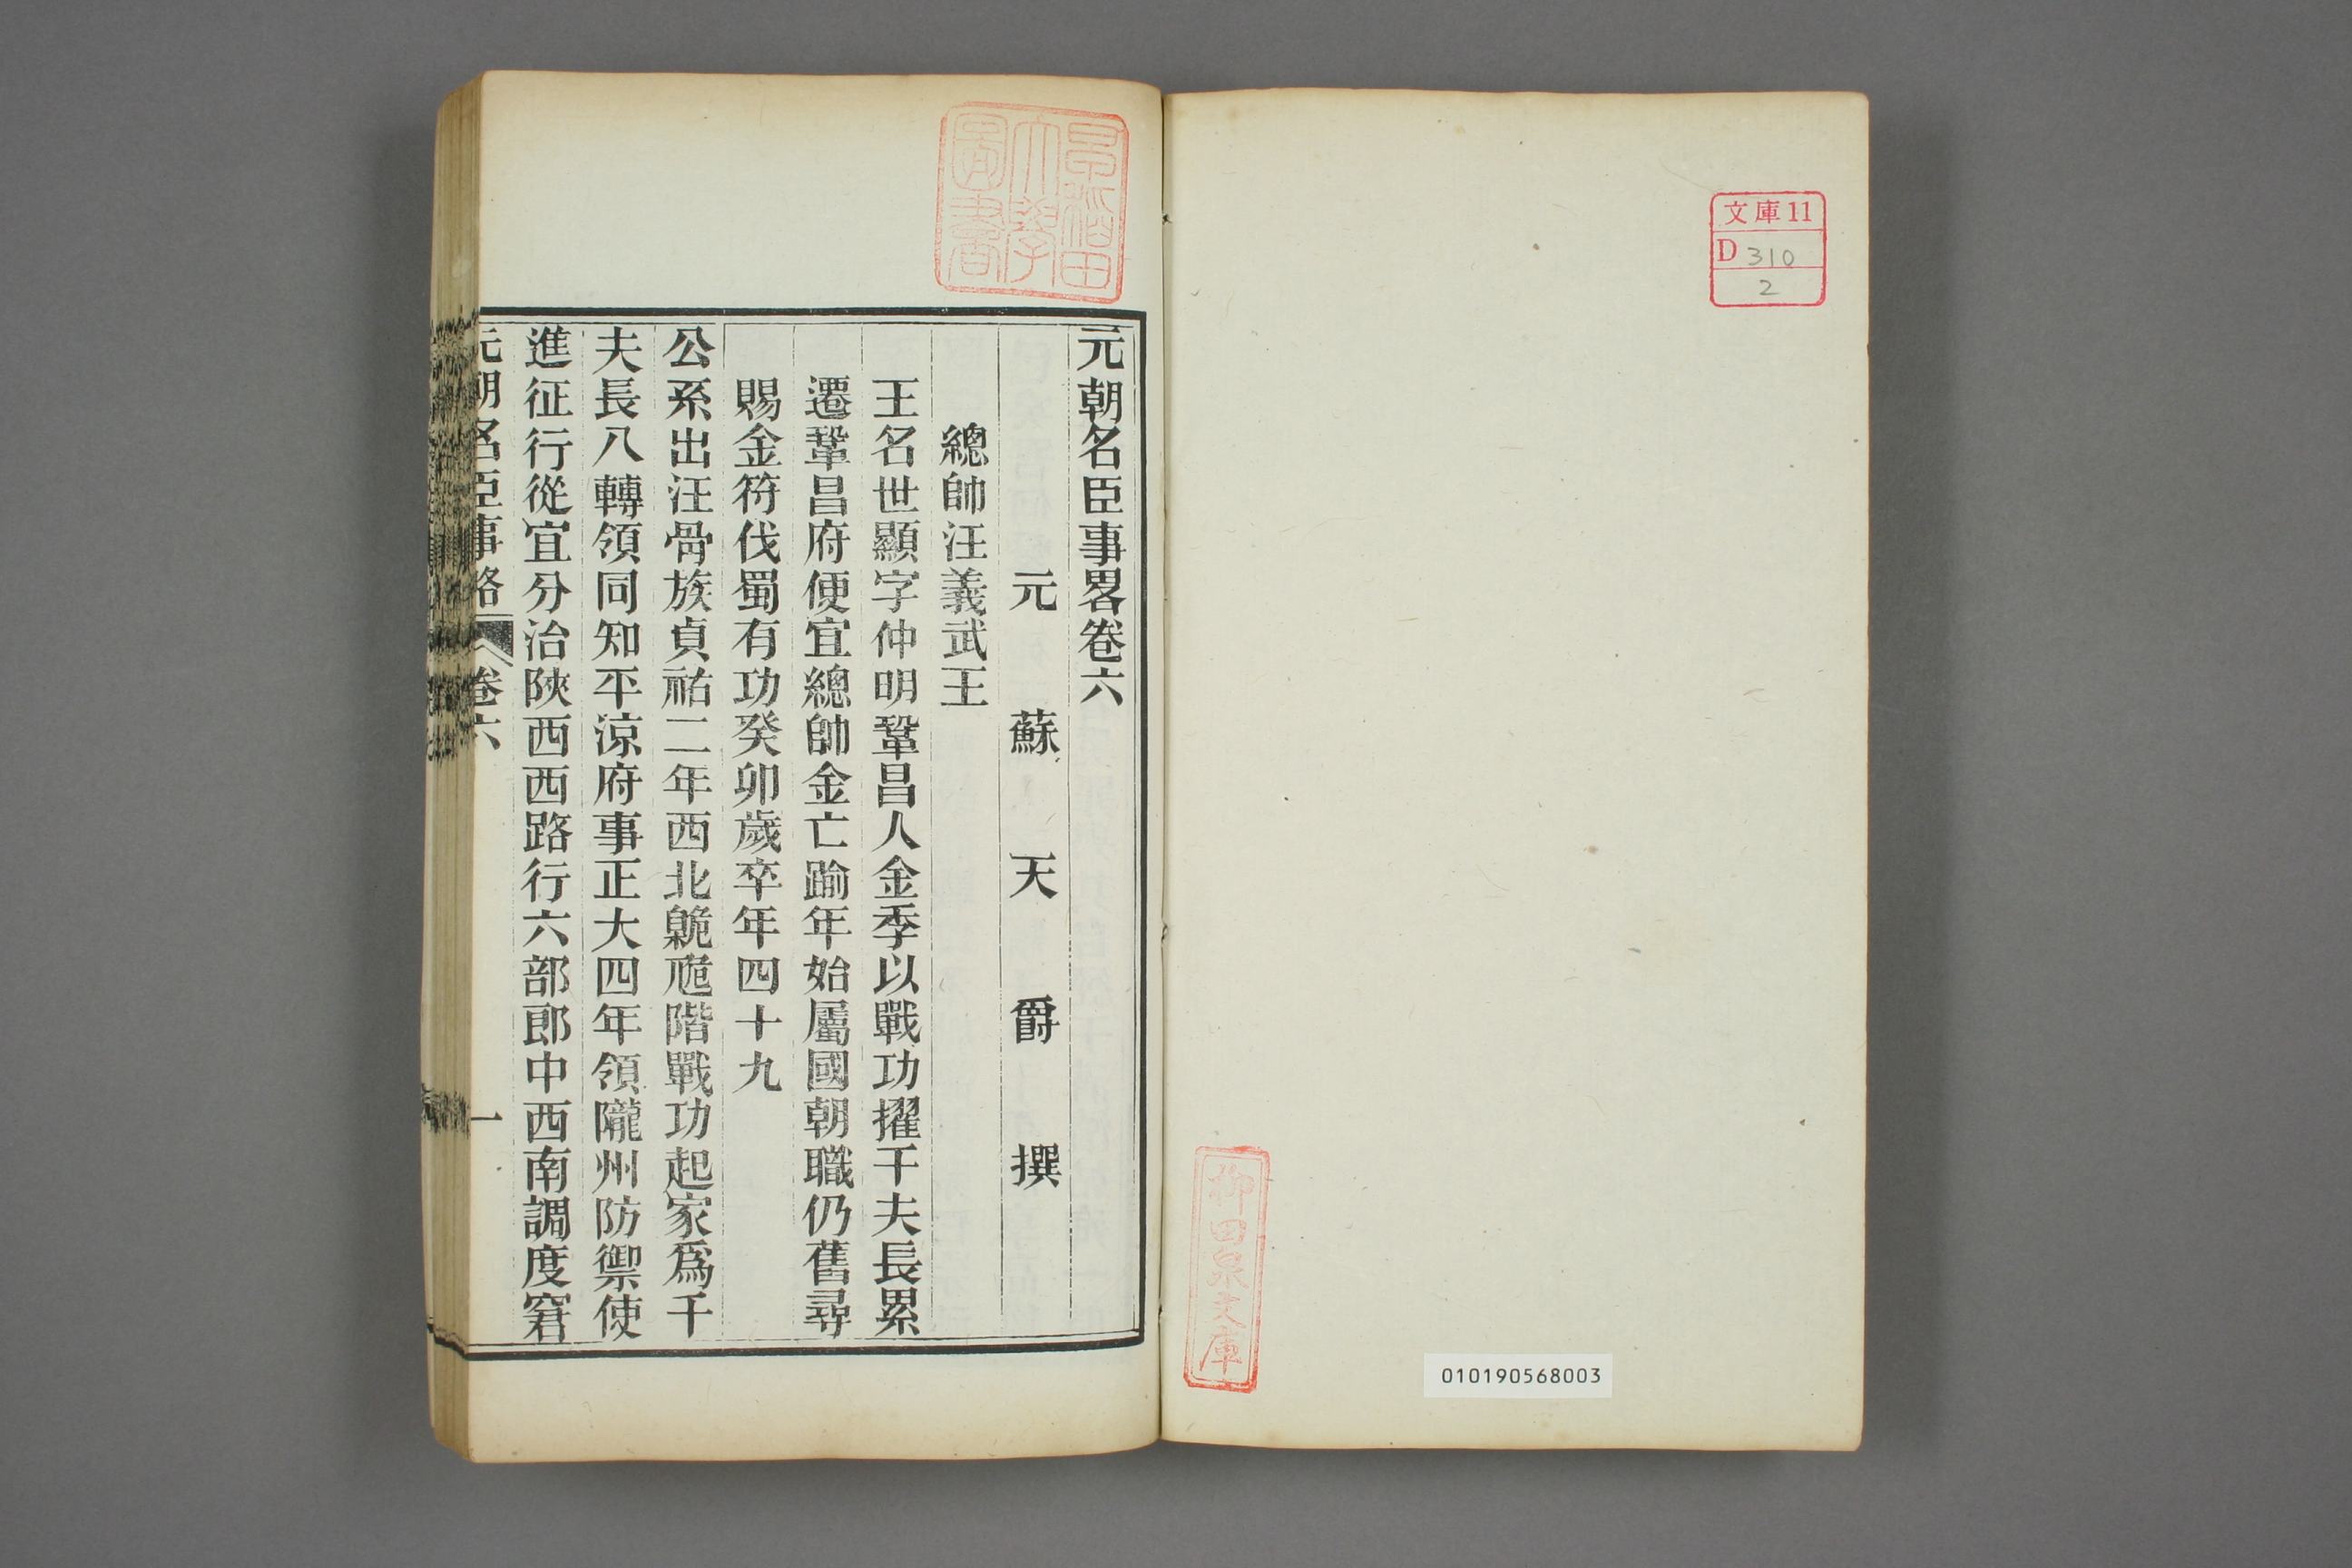 文庫11
D 310
2
柳田泉文庫
010190568003
早稲田
大學
圖書
元朝名臣事畧卷六
元 蘇 天 爵 撰
總帥汪義武王
王名世顯字仲明鞏昌人金季以戰功擢千夫長累
遷鞏昌府便宜總帥金亡踰年始屬國朝職仍舊尋
賜金符伐蜀有功癸卯歲卒年四十九
公系出汪骨族貞祐二年西北臲卼階戰功起家爲千
夫長八轉領同知平涼府事正大四年領隴州防禦使
進征行從宜分治陝西西路行六部郎中西南調度窘
元朝名臣事略 卷六 一